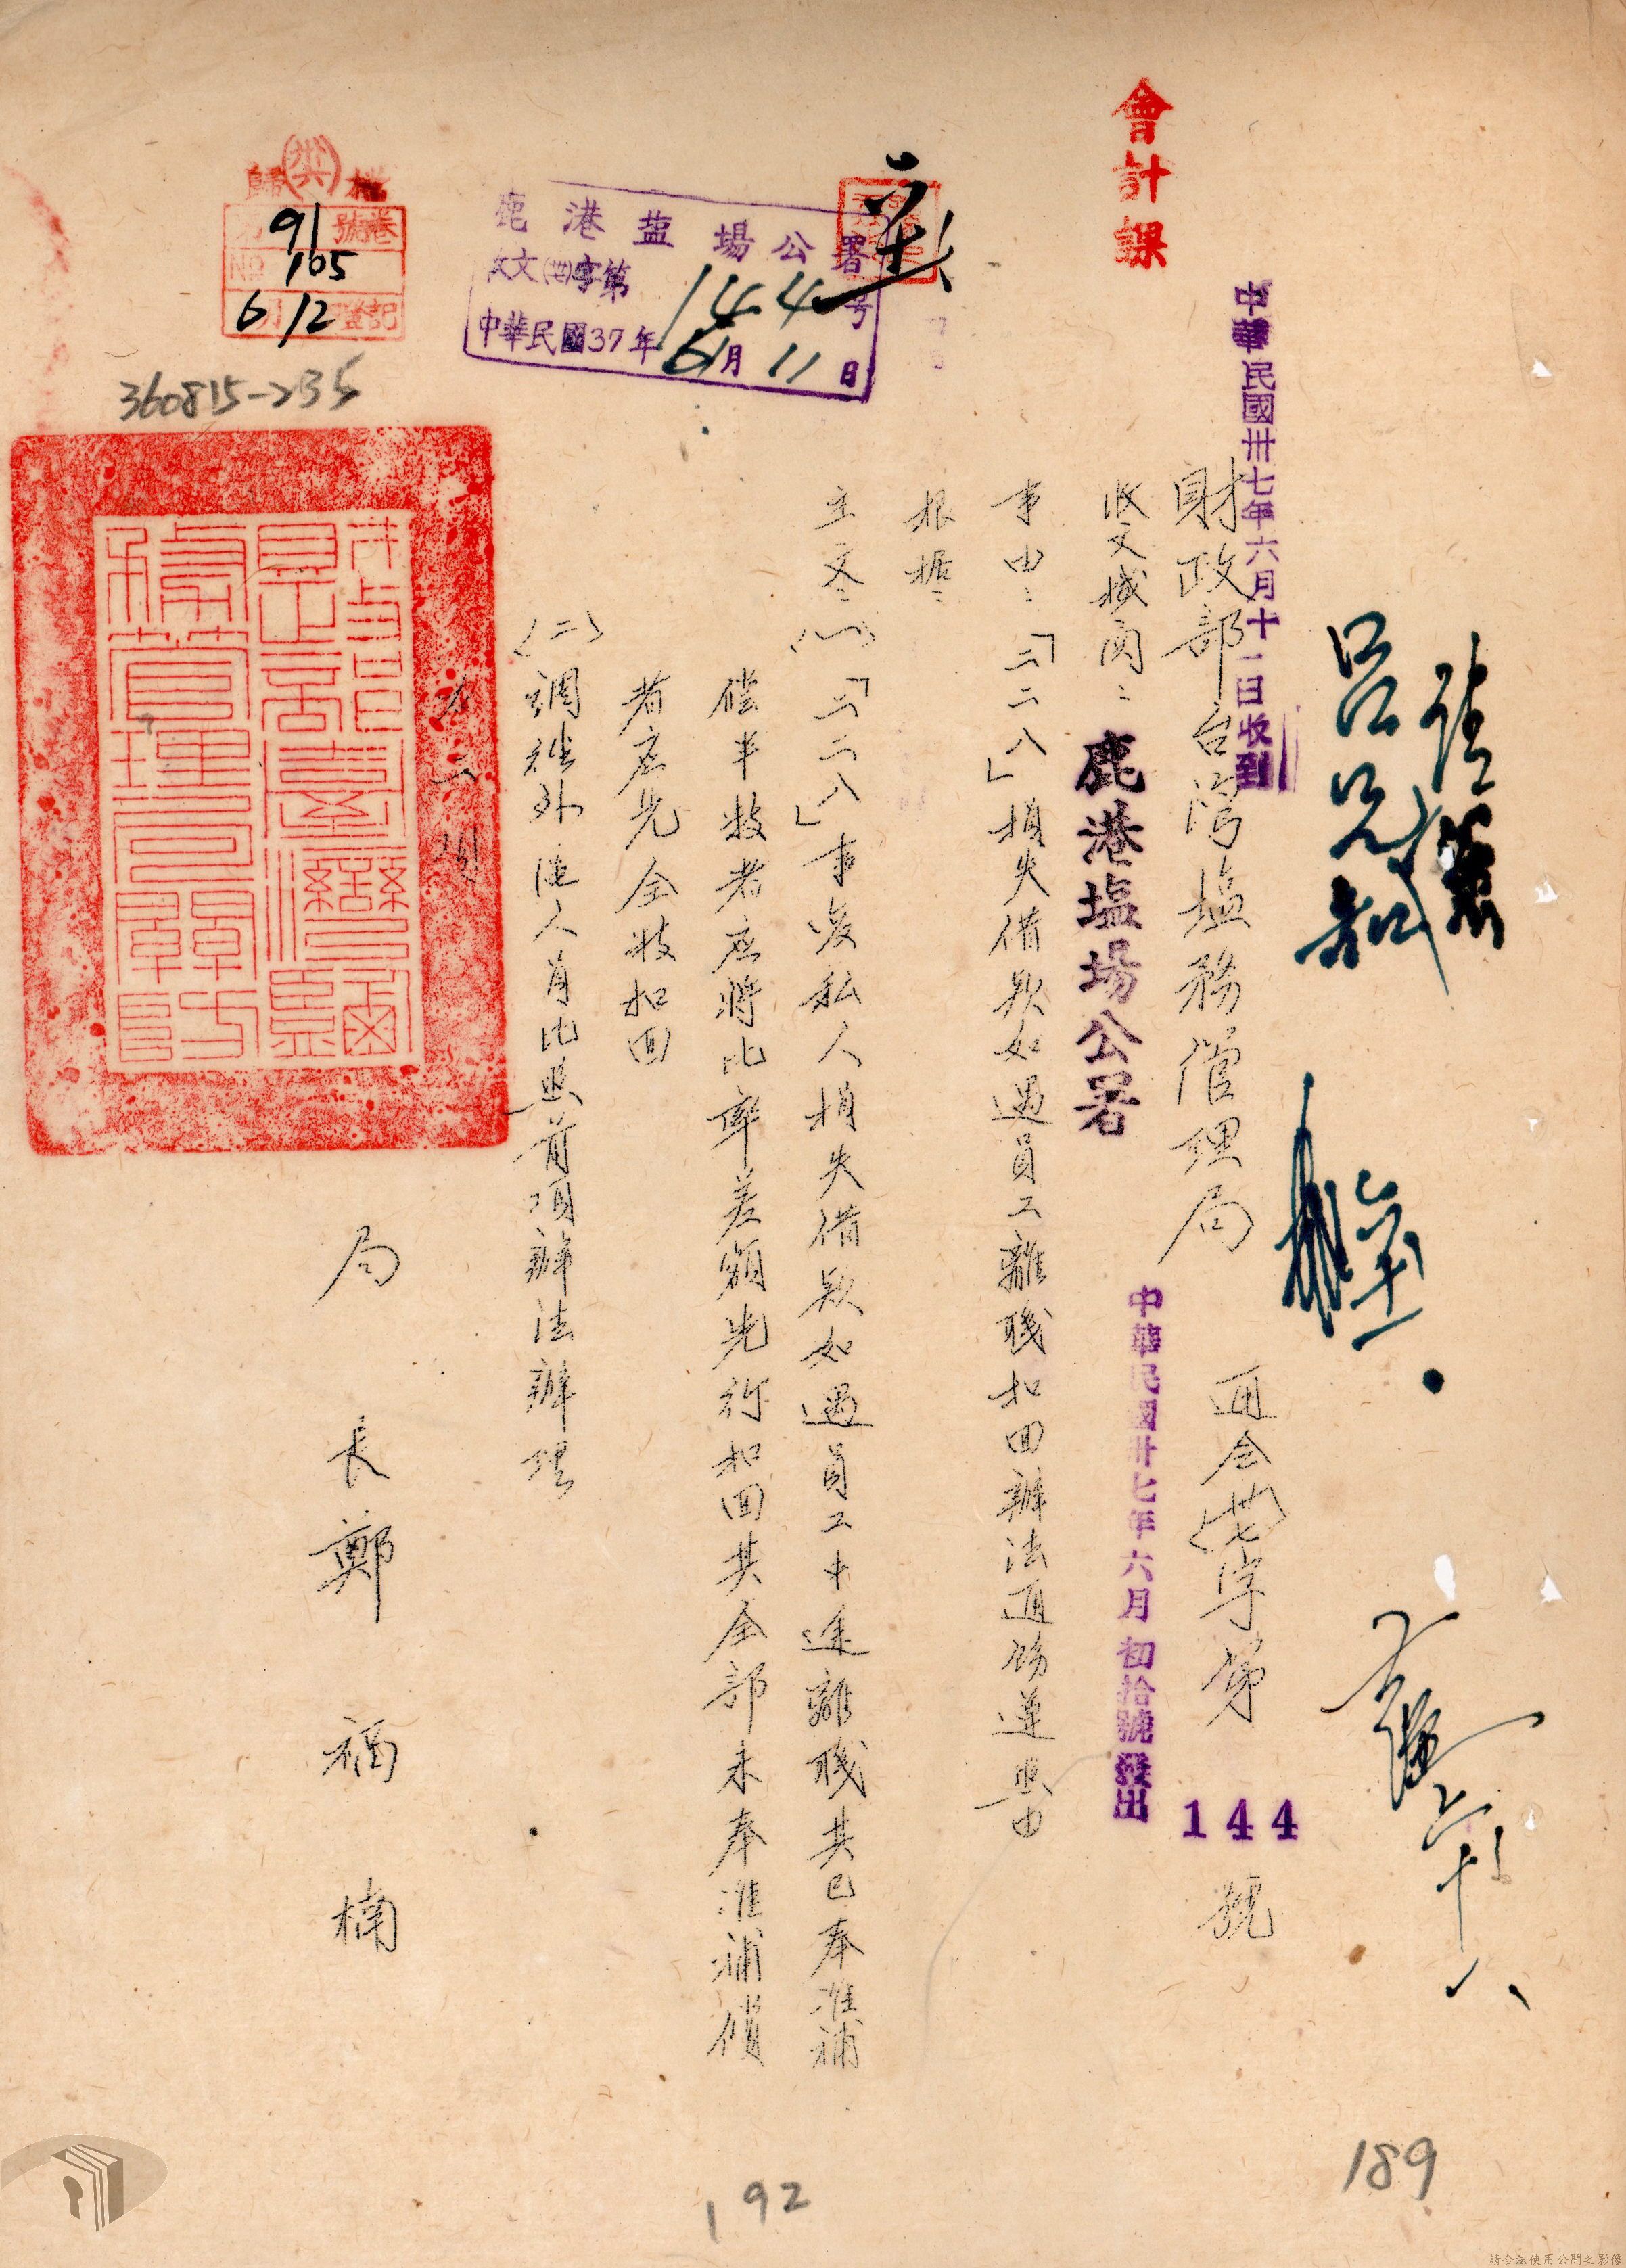 會計課
中華民國卅七年六月十一日收到
財政部台灣塩務管理局 通会(卅七)字第144號
收文機關：鹿港塩場公署
中華民國卅七年六月初拾號發出
事由：「二二八」損失借款如遇員工離職扣回辦法通飭遵照由
根据：
主文：(一)「二二八」事变私人損失借款如遇員工中途離職其已奉准補
偿半数者应將比率差額先行扣回其全部未奉准補償
者应先全数扣回
(二)調機外佳人員比照前項辦法辦理
右二項
局長鄭福楠
鹿港盐場公署
收文(卅七)字第144号
中華民國37年6月11日
歸檔
91號卷
No 105
6月12登記
360815-235
呂兄知
189
192
請合法使用公開之影像